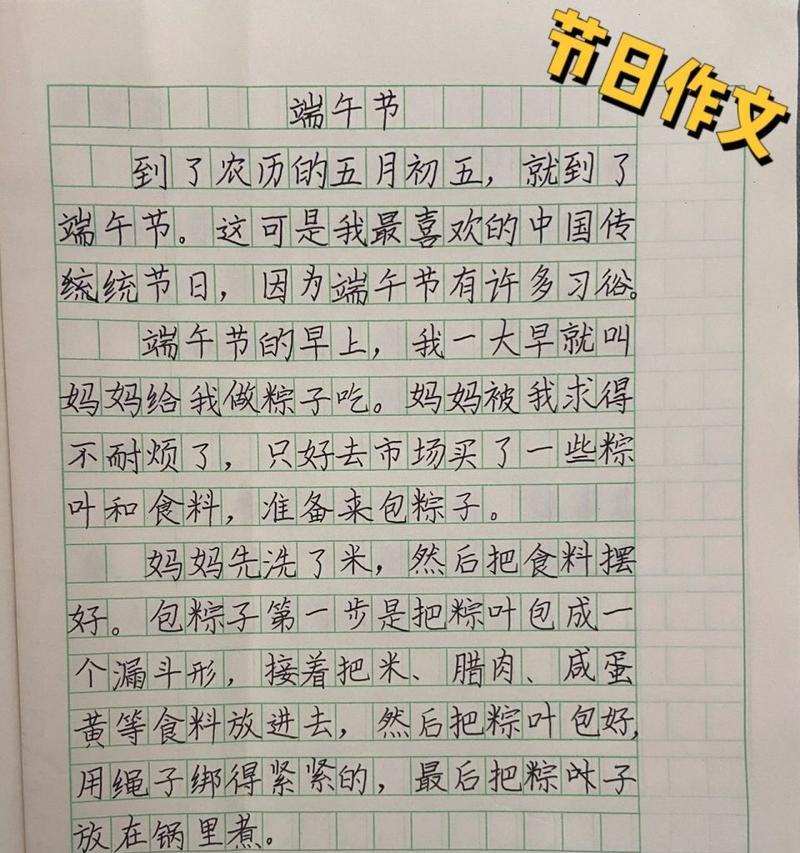 节日作文
端午节
到了农历的五月初五，就到了
端午节。这可是我最喜欢的中国传
统节日，因为端午节有许多习俗。
端午节的早上，我一大早就叫
妈妈给我做粽子吃。妈妈被我求得
不耐烦了，只好去市场买了一些粽
叶和食料，准备来包粽子。
妈妈先洗了米，然后把食料摆
好。包粽子第一步是把粽叶包成一
个漏斗形，接着把米、腊肉、咸蛋
黄等食料放进去，然后把粽叶包好，
用绳子绑得紧紧的，最后把粽子
放在锅里煮。